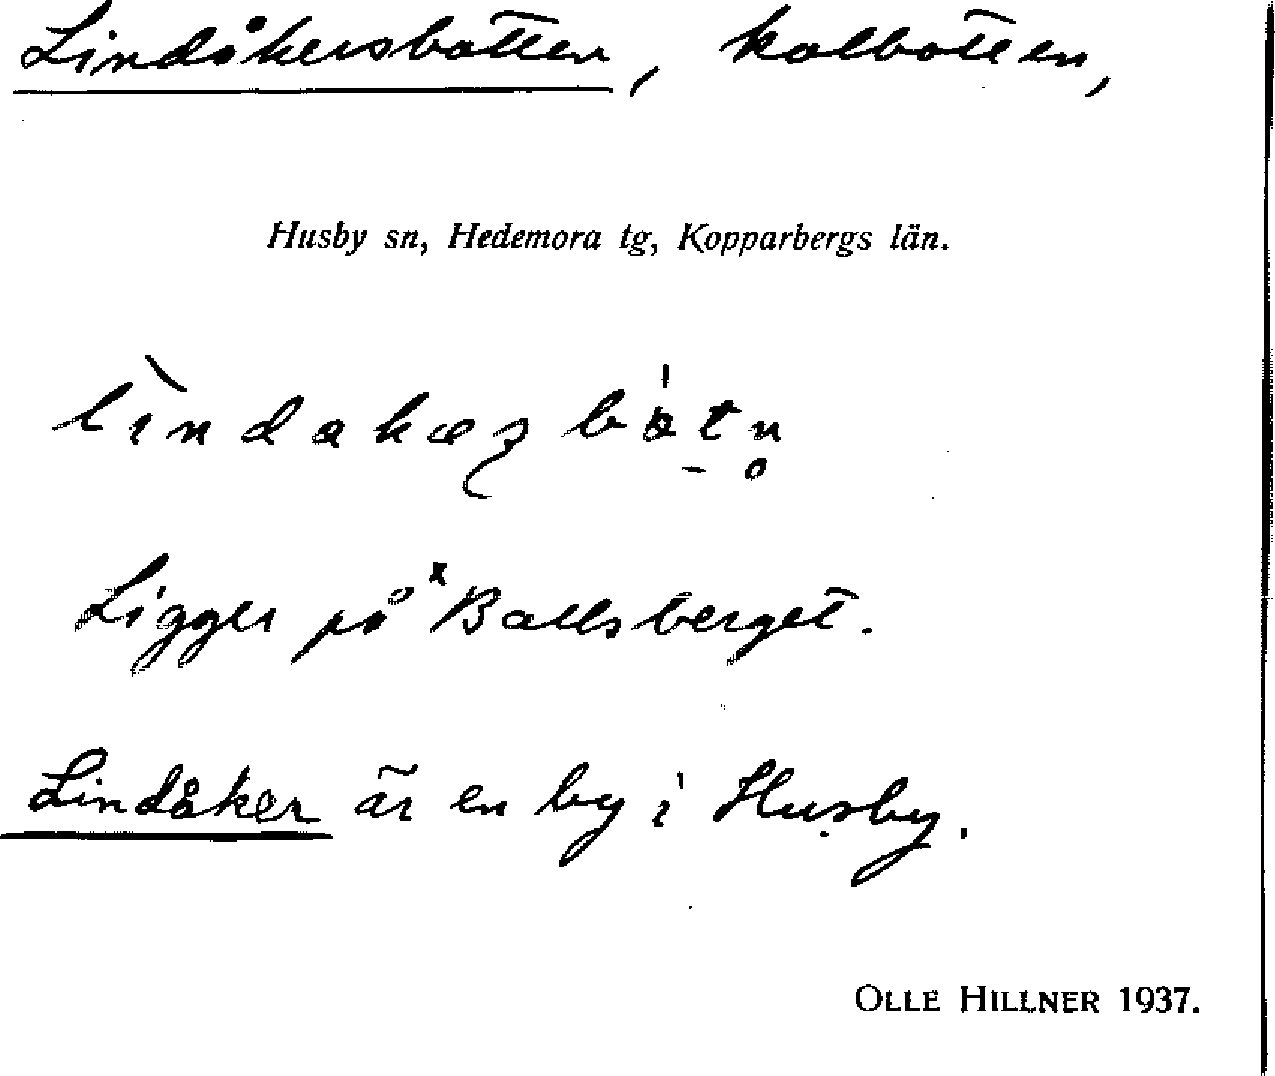 Lindåkersbotten, kolbotten,
Husby sn, Hedemora tg, Kopparbergs län.
Ligger på ˣBallsberget.
Lindåker är en by i Husby.
OLLE HILLNER 1937.